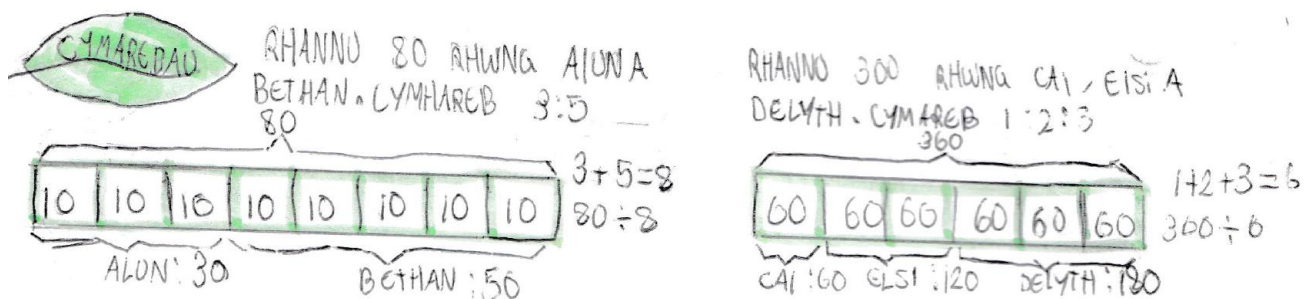 CYMAREBAU
RHANNU 80 RHWNG ALUN A
BETHAN. CYMHAREB 3:5
80
10 10 10 10 10 10 10 10
3+5=8
80÷8
ALUN: 30 BETHAN: 50
RHANNU 300 RHWNG CAI, ElSi A
DELYTH. CYMAREB 1:2:3
360
60 60 60 60 60 60
1+2+3=6
360÷6
CAI: 60 ELSI: 120 DELYTH: 180